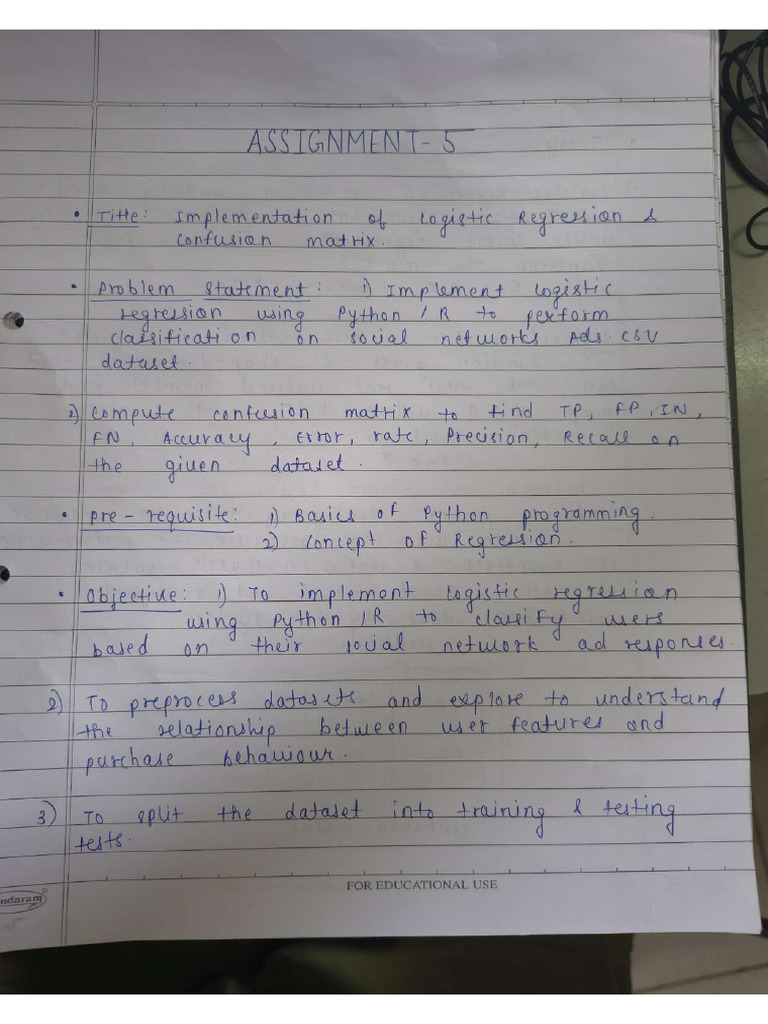 ASSIGNMENT-5
• Title: Implementation of Logistic Regression &
confusion matrix.
• Problem Statement: 1) Implement Logistic
regression using Python/R to perform
classification on social networks Ads.CSV
dataset.
2) Compute confusion matrix to find TP, FP, IN,
FN, Accuracy, Error, rate, Precision, Recall on
the given dataset.
• Pre-requisite: 1) Basics of Python programming.
2) Concept of Regression.
• Objective: 1) To implement logistic regression
using Python/R to classify users
based on their social network ad responses.
2) To preprocess datasets and explore to understand
the relationship between user features and
purchase behaviour.
3) To split the dataset into training & testing
tests.
FOR EDUCATIONAL USE
ndaram